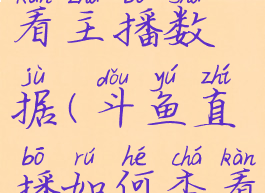 kàn zhǔ bō shù
看主播数
jù dǒu yú zhí
据(斗鱼直
bō rú hé chá kàn
播如何查看